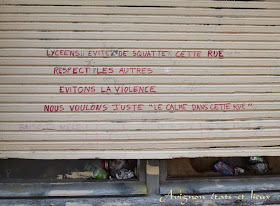 LYCEENS!! EVITEZ DE SQUATTER CETTE RUE
RESPECT LES AUTRES
EVITONS LA VIOLENCE
NOUS VOULONS JUSTE "LE CALME DANS CETTE RUE"
Avignon états et lieux